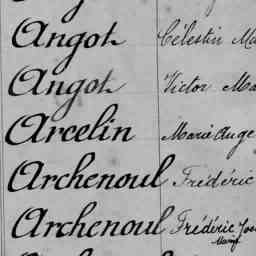 Angot Célestin
Angot Victor
Arcelin Marie Ange
Archenoul Frédéric
Archenoul Frédéric